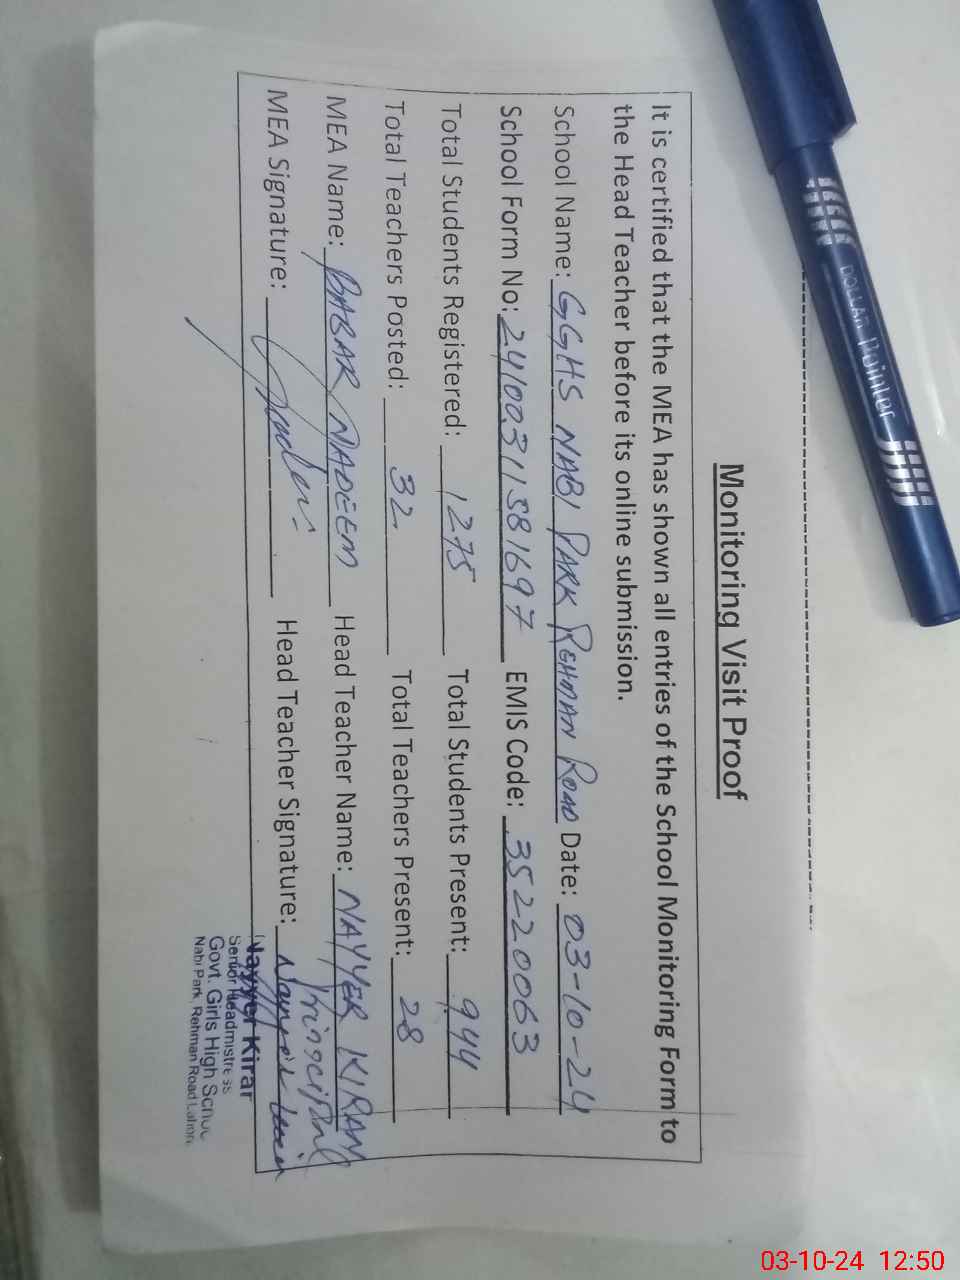 Monitoring Visit Proof
It is certified that the MEA has shown all entries of the School Monitoring Form to
the Head Teacher before its online submission.
School Name: GGHS NABI PARK REHMAN ROAD Date: 03-10-24
School Form No: 24100311581697 EMIS Code: 35220063
Total Students Registered: 1275 Total Students Present: 944
Total Teachers Posted: 32 Total Teachers Present: 28
MEA Name: BABAR NADEEM Head Teacher Name: NAYYER KIRAN
Principal
MEA Signature: Head Teacher Signature:
Nayyer Kiran
Senior Headmistress
Govt. Girls High School
Nabi Park, Rehman Road Lahore.
DOLLAR Pointer
03-10-24 12:50